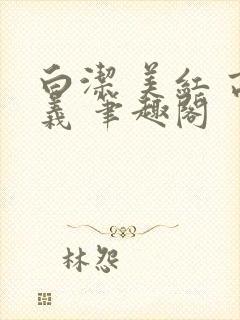 白潔 美紅 高
義 筆趣閣
林怨